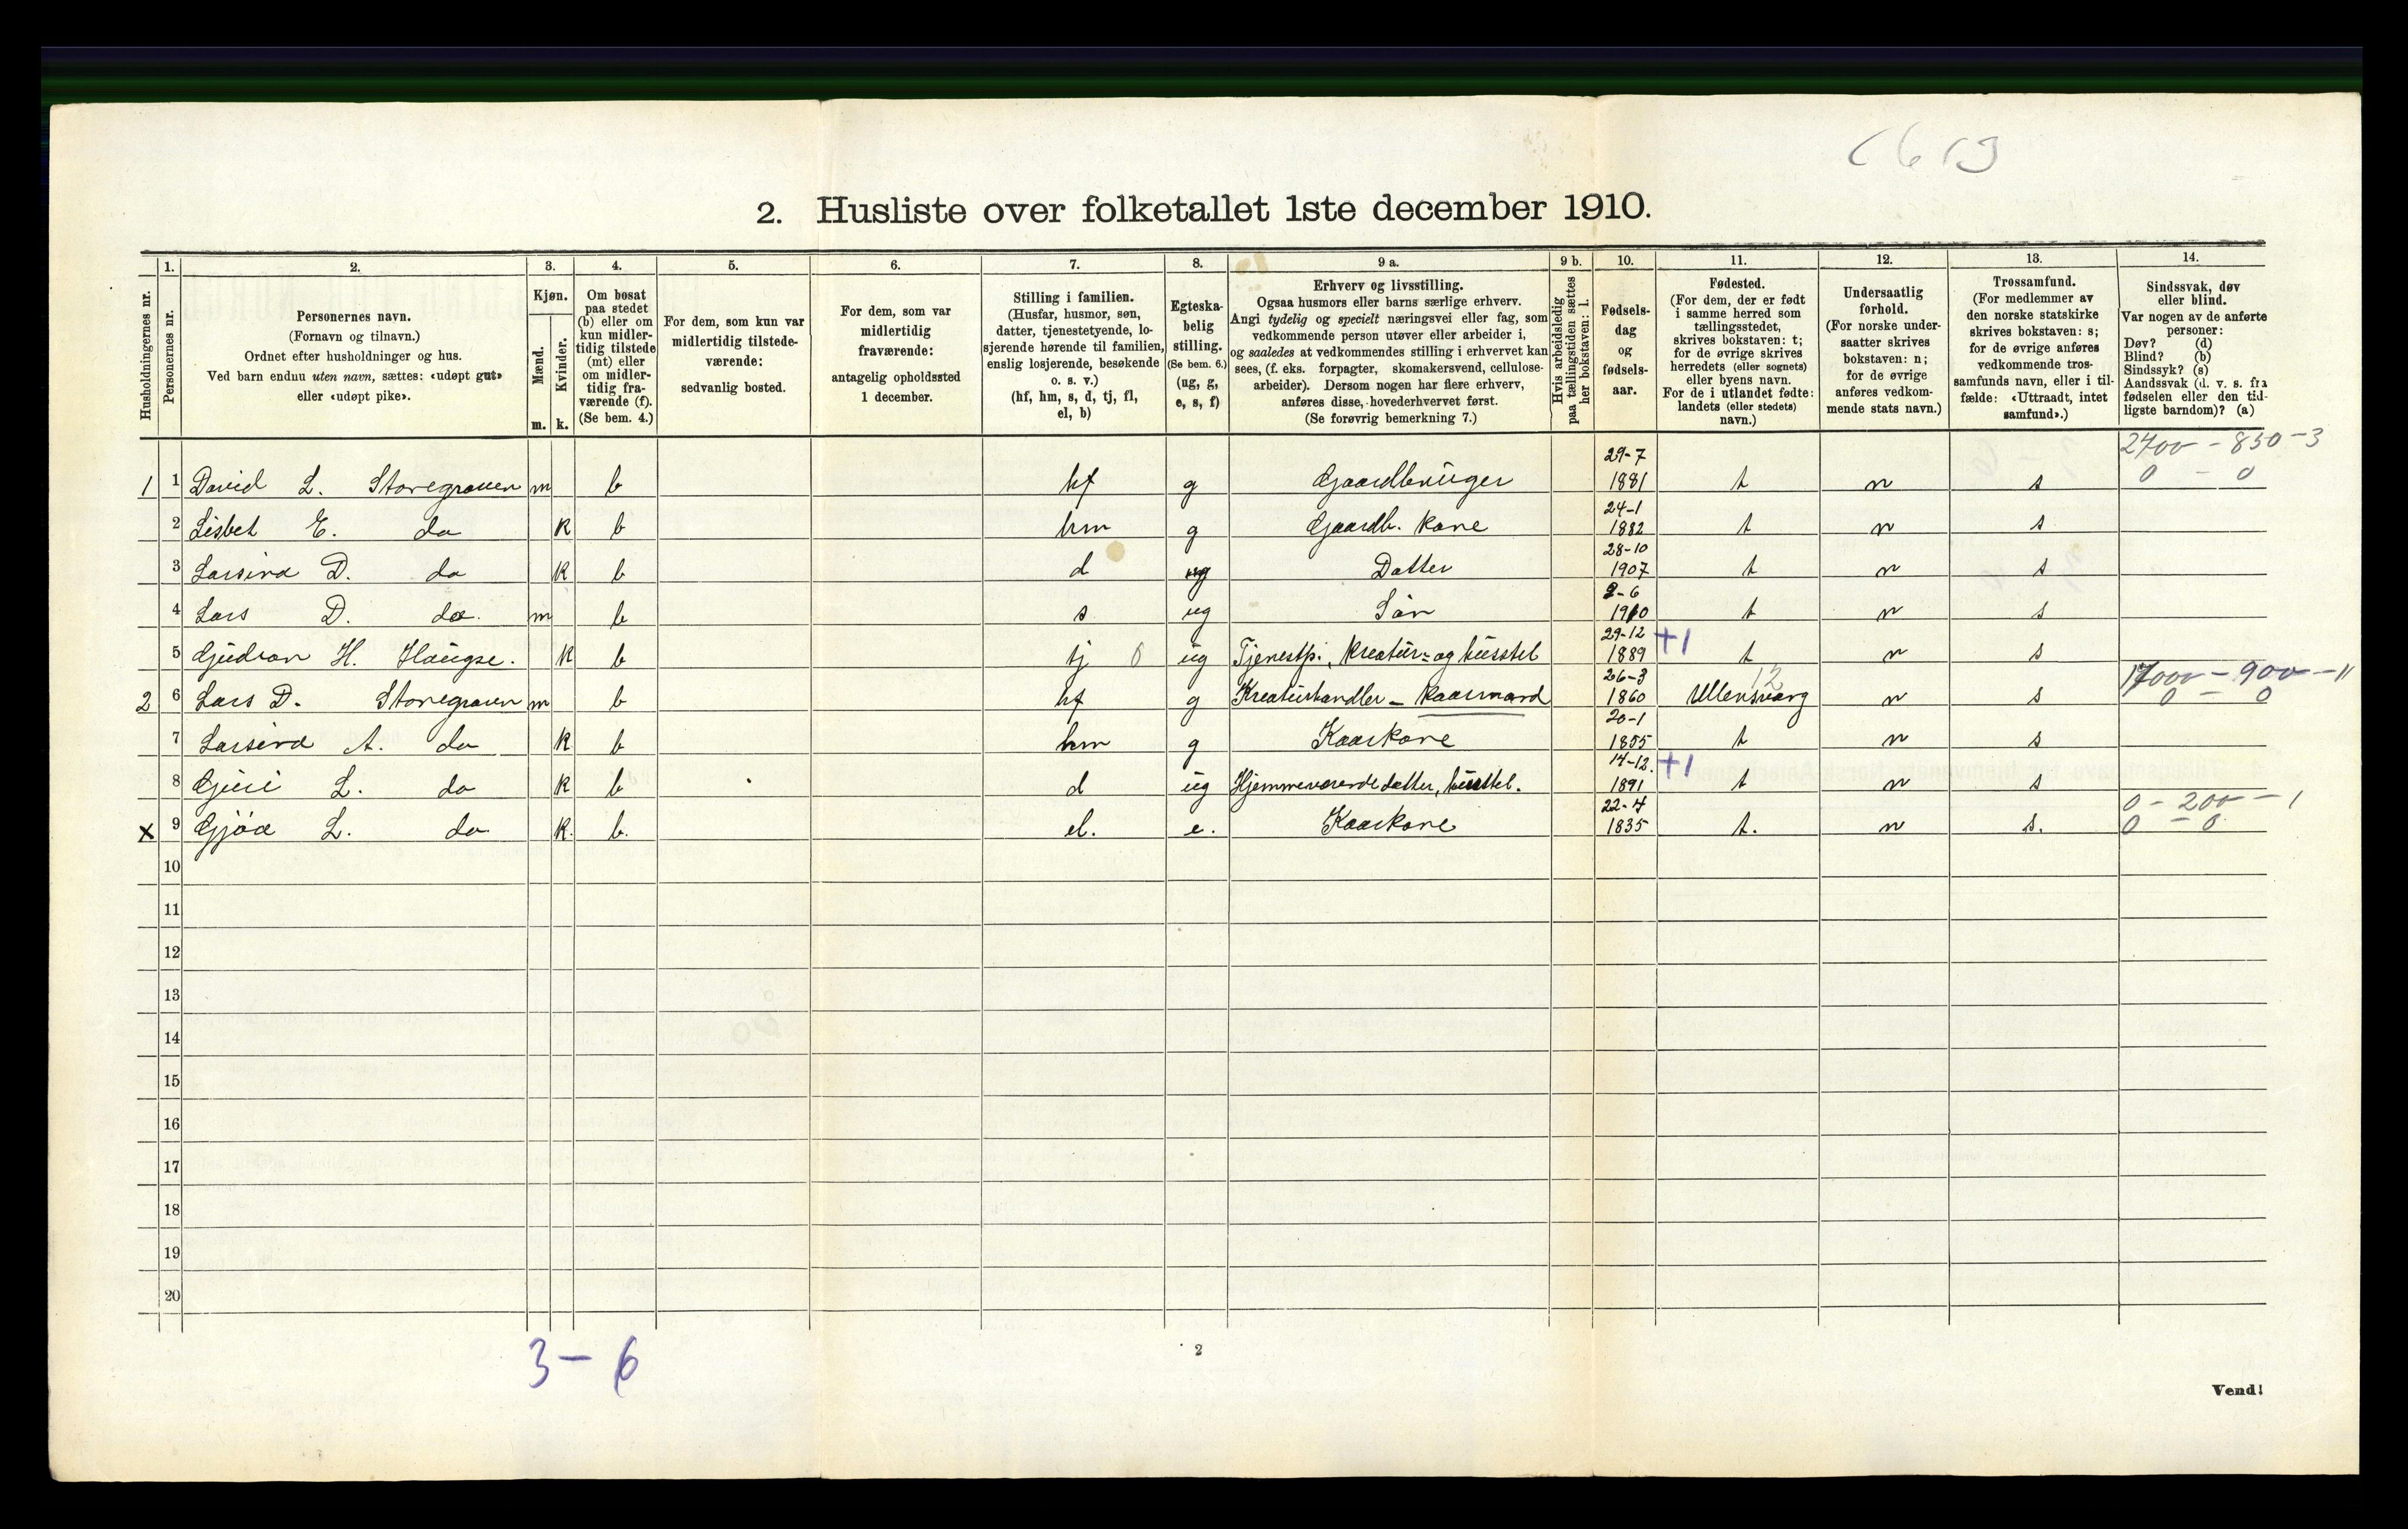 2. Husliste over folketallet 1ste december 1910.
Husholdningernes nr.
1.
Personernes nr.
2.
Personernes navn.
(Fornavn og tilnavn.)
Ordnet efter husholdninger og hus.
Ved barn endnu uten navn, sættes: «udøpt gut»
eller «udøpt pike».
3.
Kjøn.
Mænd.
Kvinder.
m. k.
4.
Om bosat
paa stedet
(b) eller om
kun midler-
tidig tilstede
(mt) eller
om midler-
tidig fra-
værende (f).
(Se bem. 4.)
5.
For dem, som kun var
midlertidig tilstede-
værende:
sedvanlig bosted.
6.
For dem, som var
midlertidig
fraværende:
antagelig opholdssted
1 december.
7.
Stilling i familien.
(Husfar, husmor, søn,
datter, tjenestetyende, lo-
sjerende hørende til familien,
enslig losjerende, besøkende
o. s. v.)
(hf, hm, s, d, tj, fl,
el, b)
8.
Egteska-
belig
stilling.
(Se bem. 6.)
(ug, g,
e, s, f)
9 a.
Erhverv og livsstilling.
Ogsaa husmors eller barns særlige erhverv.
Angi tydelig og specielt næringsvei eller fag, som
vedkommende person utøver eller arbeider i,
og saaledes at vedkommendes stilling i erhvervet kan
sees, (f. eks. forpagter, skomakersvend, cellulose-
arbeider). Dersom nogen har flere erhverv,
anføres disse, hovederhvervet først.
(Se forøvrig bemerkning 7.)
9 b.
Hvis arbeidsledig
paa tællingstiden sættes
her bokstaven: l.
10.
Fødsels-
dag
og
fødsels-
aar.
11.
Fødested.
(For dem, der er født
i samme herred som
tællingsstedet,
skrives bokstaven: t;
for de øvrige skrives
herredets (eller sognets)
eller byens navn.
For de i utlandet fødte:
landets (eller stedets)
navn.)
12.
Undersaatlig
forhold.
(For norske under-
saatter skrives
bokstaven: n;
for de øvrige
anføres vedkom-
mende stats navn.)
13.
Trossamfund.
(For medlemmer av
den norske statskirke
skrives bokstaven: s;
for de øvrige anføres
vedkommende tros-
samfunds navn, eller i til-
fælde: «Uttraadt, intet
samfund».)
14.
Sindssvak, døv
eller blind.
Var nogen av de anførte
personer:
Døv? (d)
Blind? (b)
Sindssyk? (s)
Aandssvak (d. v. s. fra
fødselen eller den tid-
ligste barndom)? (a)
1 1 David L. Storegraven m b hf g Gaardbruger 29-7 1881 t n s 2400 - 850 - 3 0 - 0
2 Lisbet E. do k b hm g Gaardb. kone 24-1 1882 t n s
3 Larsina D. do k b d ug Datter 28-10 1907 t n s
4 Lars D. do. m b s ug Søn 2-6 1910 t n s
5 Gudron H. Haugse. k b tj 0 ug Tjenestp., kreatur- og husstel 29-12 1889 +1 t n s
2 6 Lars D. Storegraven m b hf g Kreaturhandler - kaarmand 26-3 1860 12 Ullensvang n s 17000 - 900 - 11 0 - 0
7 Larsina A. do k b hm g Kaarkone 20-1 1855 t n s
8 Guri L. do k b d ug Hjemmeværende datter, husstel. 14-12. 1891 +1 t n s
x 9 Gjøa L. do k. b. el. e. Kaarkone 22-4 1835 t. n s. 0 - 200 - 1 0 - 0
10
11
12
13
14
15
16
17
18
19
20
3 - 6
2
Vend!